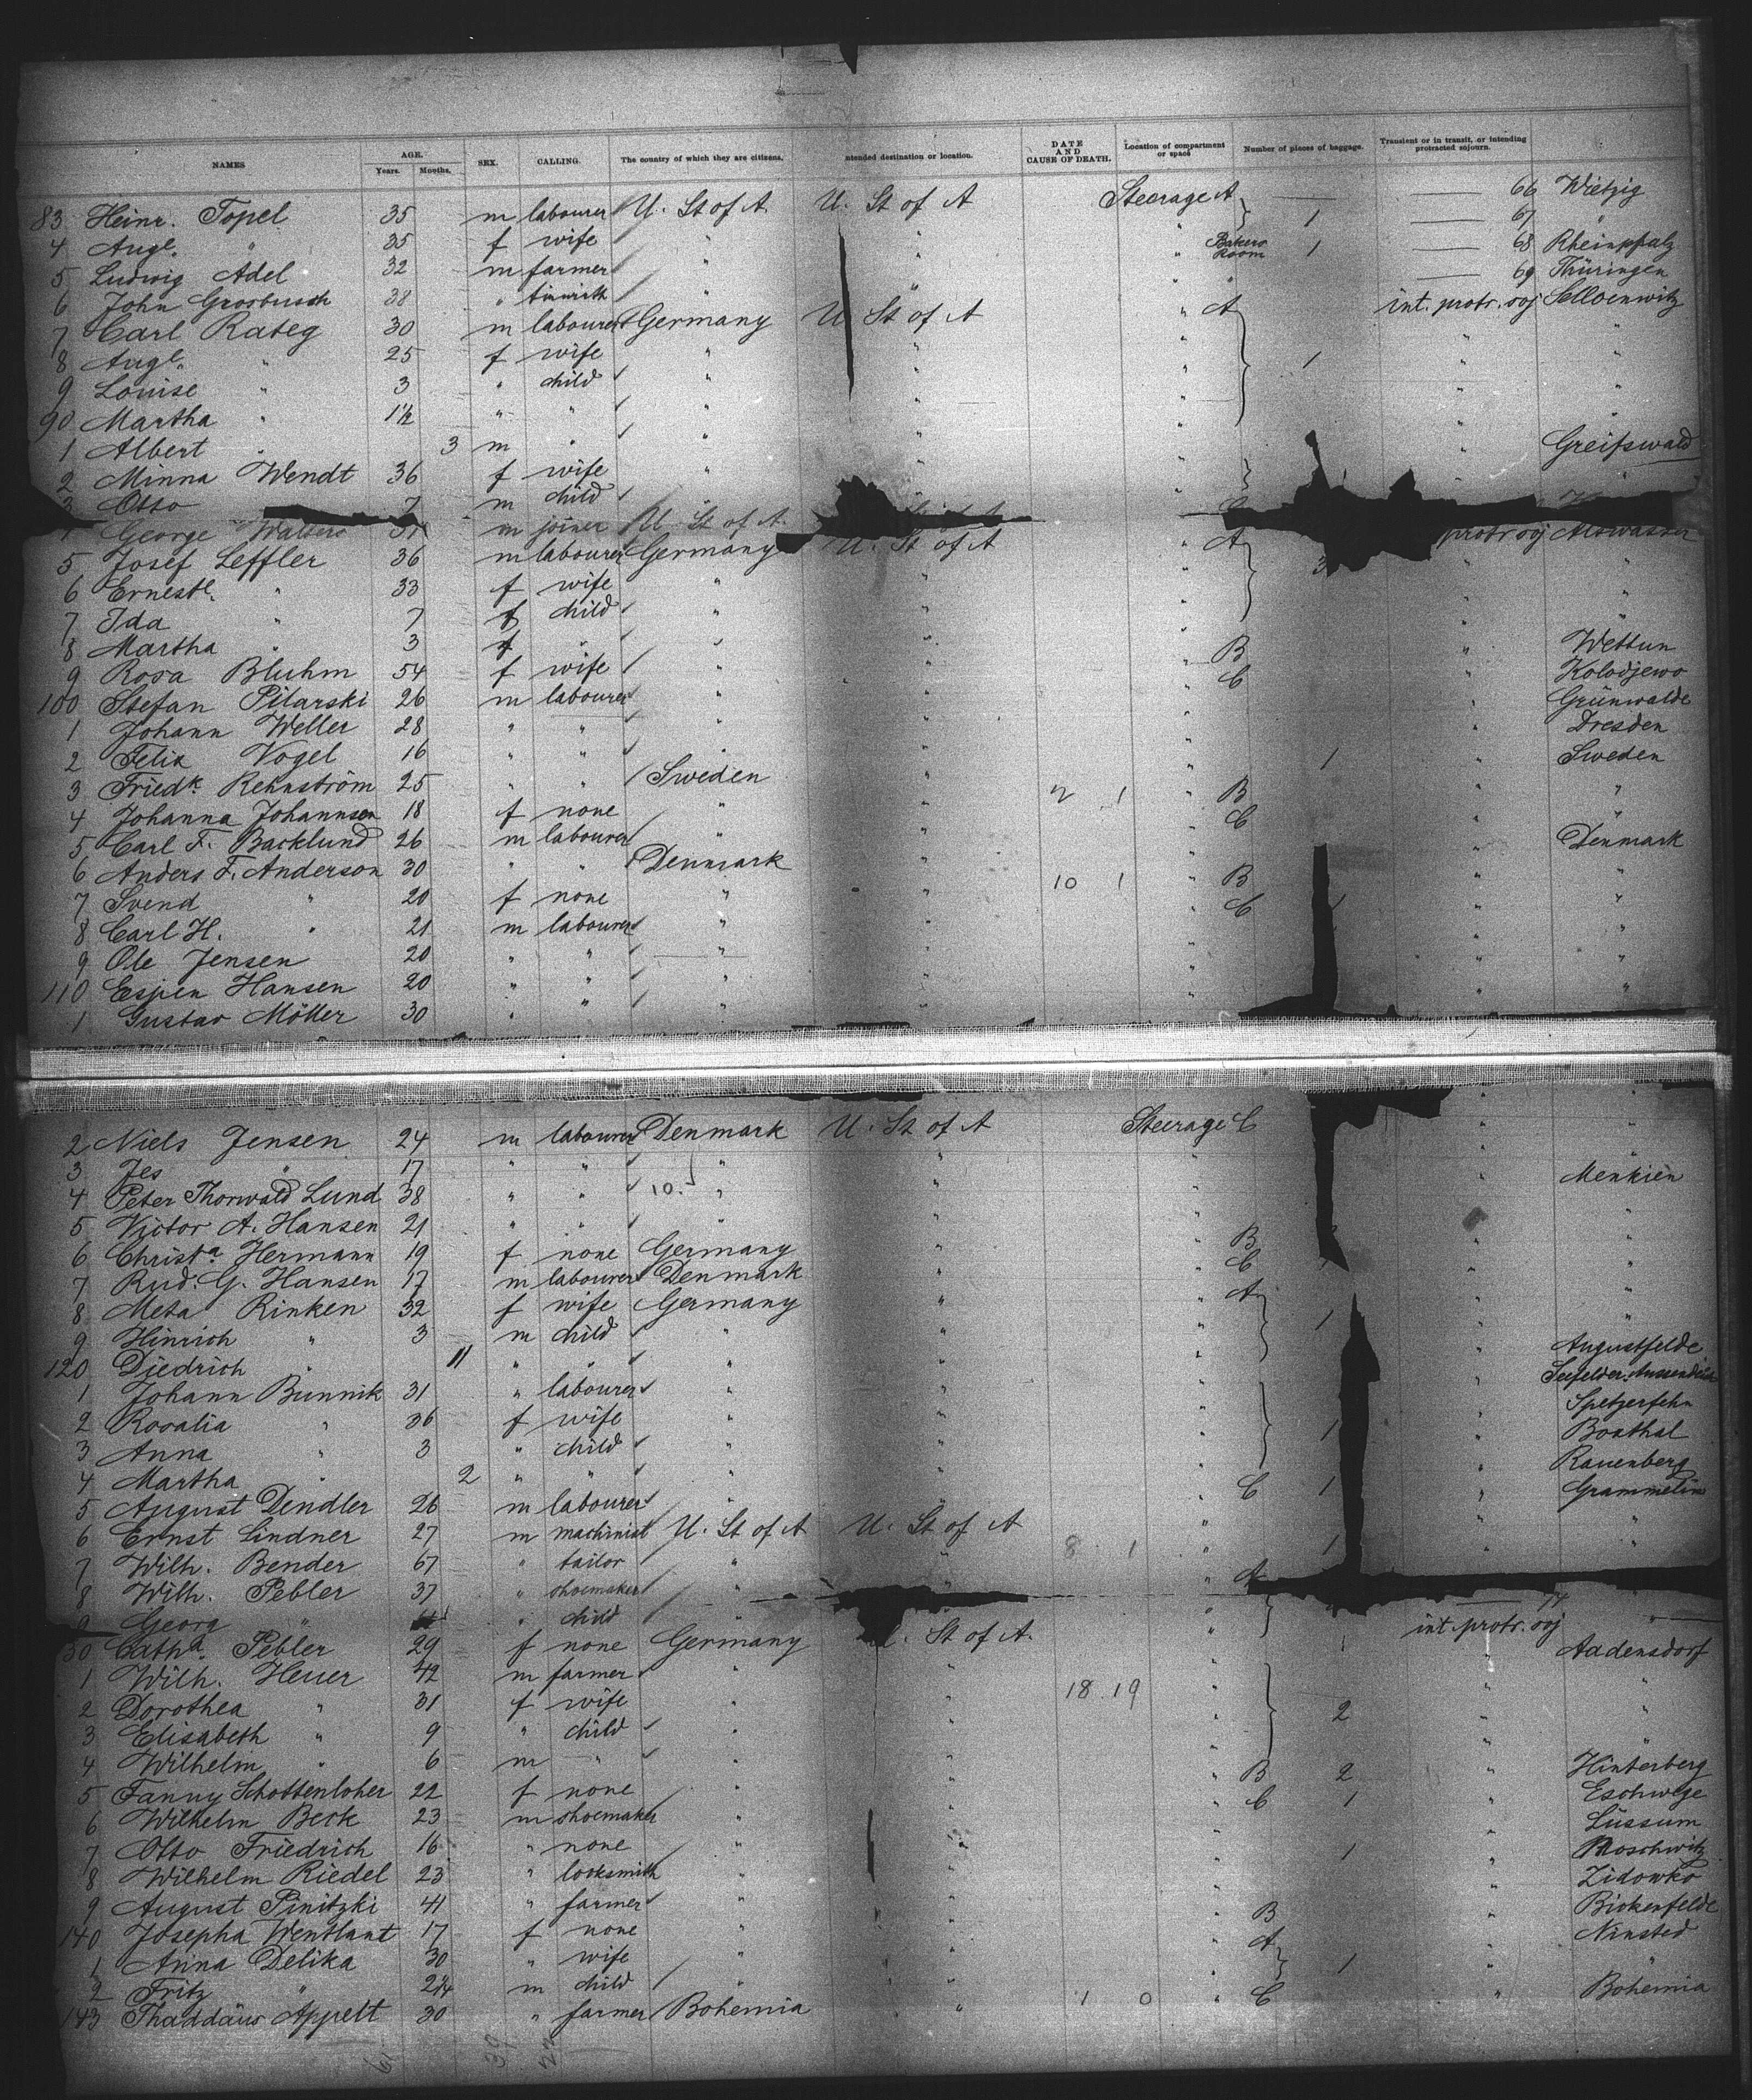 NAMES AGE. Years. Months. SEX. CALLING. The country of which they are citizens. Intended destination or location. DATE AND CAUSE OF DEATH. Location of compartment or space Number of pieces of baggage. Transient or in transit, or intending protracted sojourn.
83 Heinr. Topel 35 m labourer U. St of A. U. St of A Steerage A 66 Wietzig
4 Augte. " 35 f wife " " 1 67 "
5 Ludwig Adel 32 m farmer " " " Bakers Room 1 68 Rheinpfalz
6 John Grosbusch 38 " tinsmith " " " 69 Thüringen
7 Carl Rateg 30 m labourer Germany U St of A " A int. protr. soj
8 Augte. " 25 f wife " " " 1 " "
9 Louise " 3 " child " " " " "
90 Martha " 1½ " " " " " " "
1 Albert " 3 m " " " " "
2 Minna Wendt 36 f wife " " " " Greifswald
3 Otto 7 m child
George Walters m joiner U. St of A.
5 Josef Leffler 36 m labourer Germany U. St of A " A 3 protr soj
6 Ernestte. " 33 f wife " " " " "
7 Ida " 7 f child " " " " "
8 Martha " 3 f " " " " " "
9 Rosa Bluhm 54 f wife " " " B " Wettun
100 Stefan Pilarski 26 m labourer " " " C " Kolodjewo
1 Johann Weller 28 " " " " " " Grünwalde
2 Felix Vogel 16 " " " " " " Dresden
3 Friedk. Rehnström 25 " " Sweden " " 1 " Sweden
4 Johanna Johannsen 18 f none " " 2 1 " B " "
5 Carl F. Backlund 26 m labourer " " " C " "
6 Anders F. Anderson 30 " " Denmark " " " Denmark
7 Svend " 20 f none " " 10 1 " B " "
8 Carl H. " 21 m labourer " " " C " "
9 Ole Jensen 20 " " " " " " "
110 Espen Hansen 20 " " " " " " "
1 Gustav Möller 30 " " " " " " "
2 Niels Jensen 24 m labourer Denmark U. St of A Steerage C " "
3 Jes " 17 " " " " " " "
4 Peter Thorwald Lund 38 " " 10. " " " "
5 Victor A. Hansen 21 " " " " " "
6 Christa. Hermann 19 f none Germany " " B " Menkien
7 Rud. G. Hansen 17 m labourer Denmark " " C " "
8 Meta Rinken 32 f wife Germany " " A " "
9 Hinrich " 3 m child " " " 1 " "
120 Diedrich " 11 " " " " " "
1 Johann Bunnik 31 " labourer " " " " Augustfelde
2 Rosalia " 36 f wife " " " 1 "
3 Anna " 3 " child " " " " Spetzerfehn
4 Martha " 2 " " " " " " Boathal
5 August Dendler 26 m labourer " " " C 1 " Rauenberg
6 Ernst Lindner 27 m machinist U. St of A U. St of A " " Grammetin
7 Wilh. Bender 67 " tailor " " 8 1 " 1 "
8 Wilh. Pebler 37 " shoemaker " " A
9 Georg " " child " " 74 "
30 Catha. Pebler 29 f none Germany U. St of A. " int. protr. soj "
1 Wilh. Heuer 42 m farmer " " " " Aadensdorf
2 Dorothea " 31 f wife " " 18 19 " 2 " "
3 Elisabeth " 9 " child " " " " "
4 Wilhelm " 6 m " " " " " "
5 Fanny Schottenloher 22 f none " " " B 2 " Hinterberg
6 Wilhelm Beck 23 m shoemaker " " " C 1 " Eschwege
7 Otto Friedrich 16 " none " " " " Lüssum
8 Wilhelm Riedel 23 " locksmith " " " 1 " Moschwitz
9 August Pinitzki 41 " farmer " " " " Zidowko
140 Josepha Wentlant 17 f none " " " B " Birkenfelde
1 Anna Delika 30 " wife " " " A 1 " Ninsted
2 Fritz " 2¼ m child " " " " "
143 Thaddäus Appelt 30 " farmer Bohemia " 1 0 " C " Bohemia
39 22